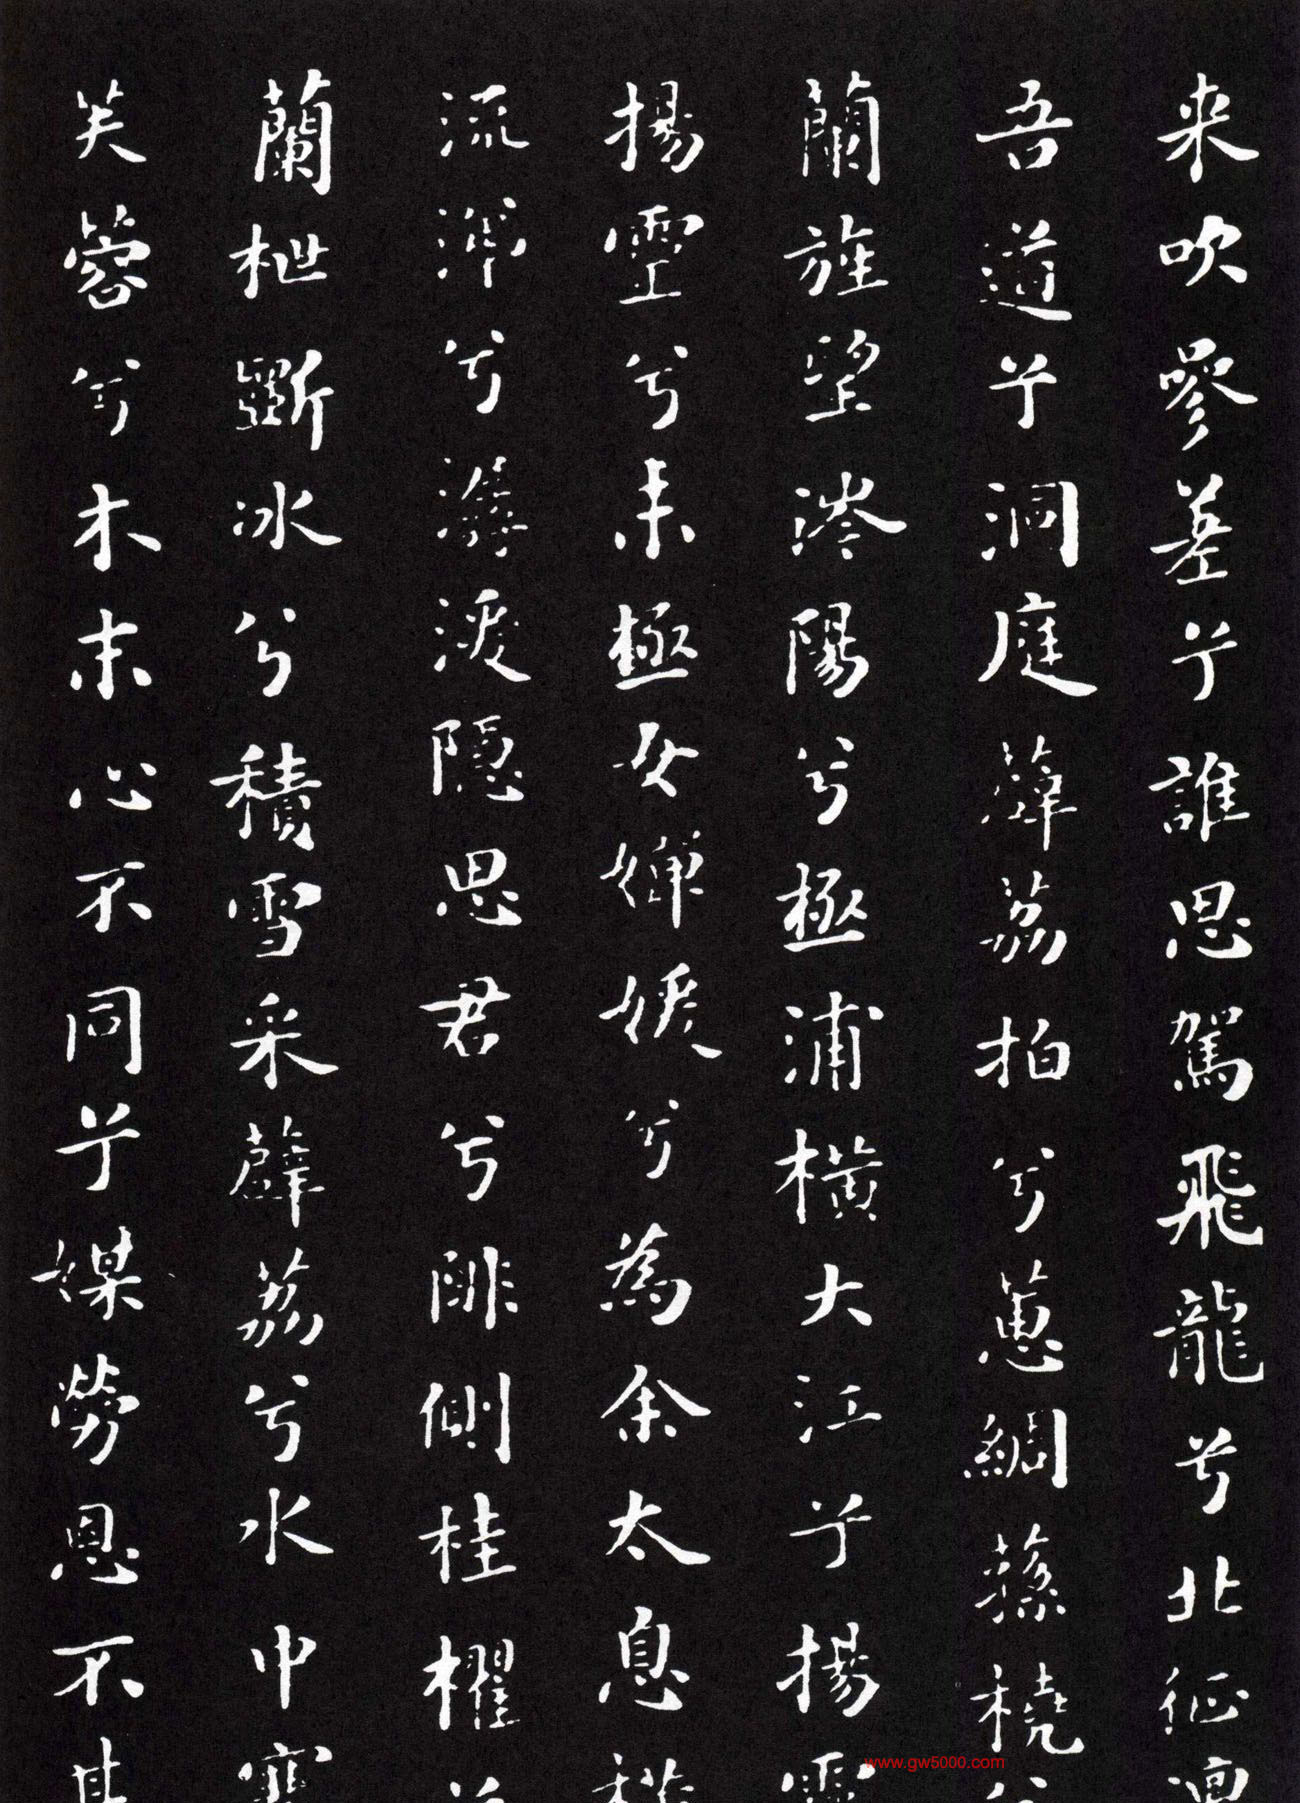 来吹參差兮誰思駕飛龍兮北征邅
吾道兮洞庭薜荔拍兮蕙綢蓀橈兮
蘭旌望涔陽兮極浦橫大江兮揚靈
揚靈兮未極女嬋媛兮為余太息橫
流涕兮潺湲隱思君兮陫側桂櫂兮
蘭枻斲冰兮積雪采薜荔兮水中搴
芙蓉兮木末心不同兮媒勞恩不甚
www.gw5000.com